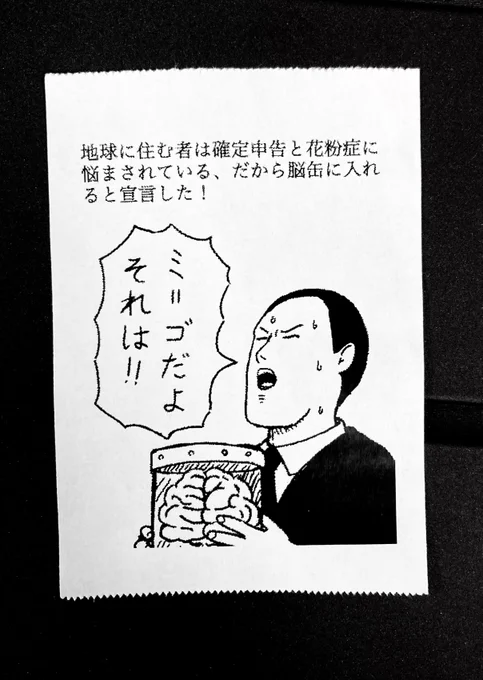 地球に住む者は確定申告と花粉症に
悩まされている、だから脳缶に入れ
ると宣言した！
ミ＝ゴだよ
それは!!